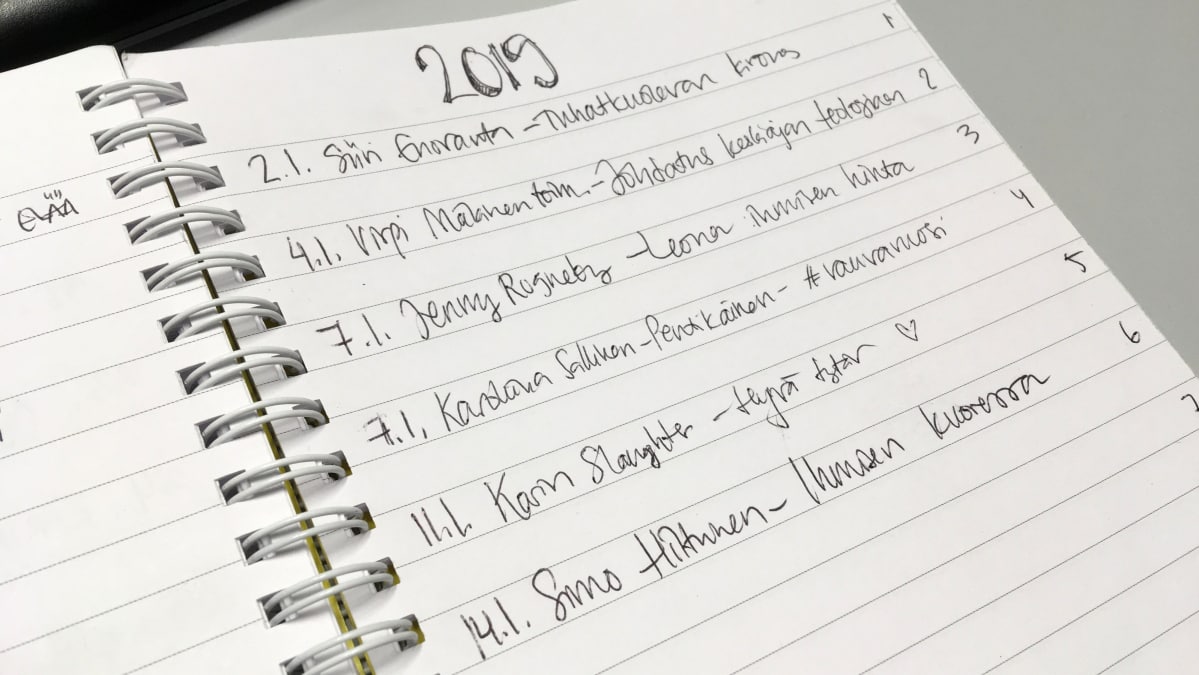 2019
2.1. Siiri Enoranta - Tuhatkuolevan kirous 1
4.1. Virpi Mäkinen toim. - Johdatus keskiajan teologiaan 2
7.1. Jenny Rogneby - Leona ihmisen hinta 3
7.1. Karoliina Sallinen-Pentikäinen - #rauvavuosi 4
11.1. Karin Slaughter - Hyvä tytär ♡ 5
14.1. Simo Hiltunen - Ihmisen kuoressa 6
7
ELÄÄ